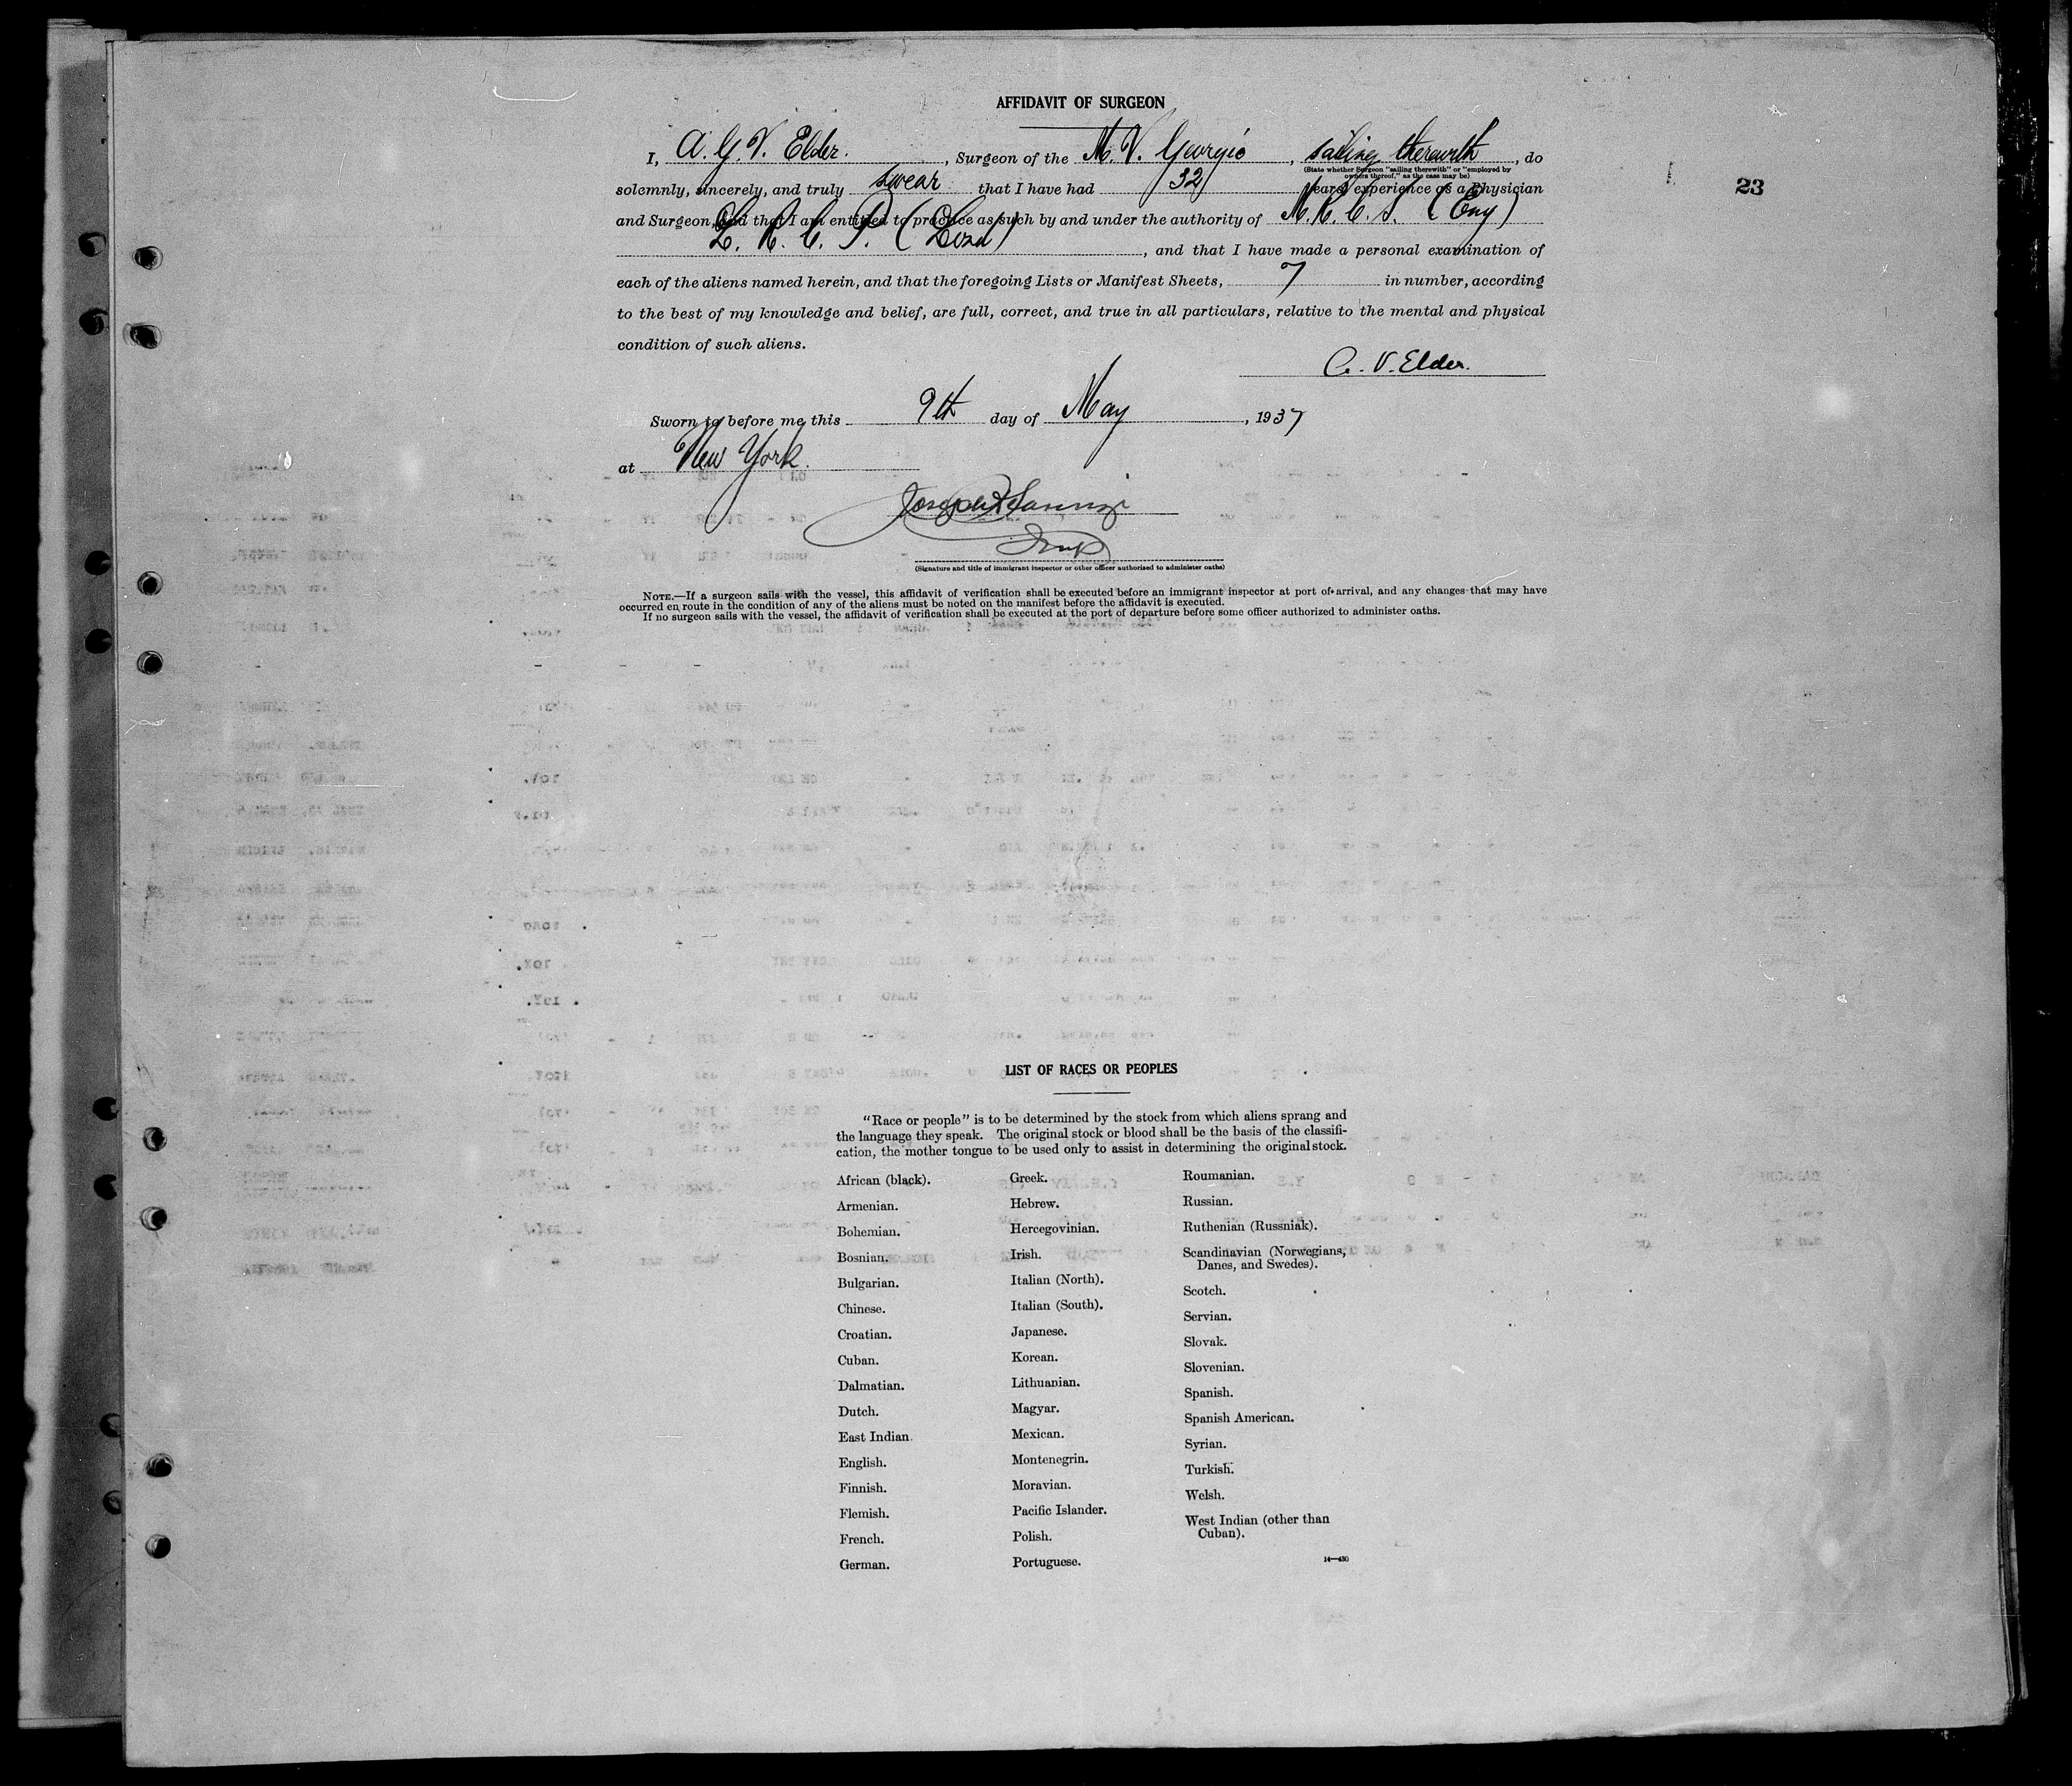 AFFIDAVIT OF SURGEON
I, A. G. V. Elder. , Surgeon of the M. V. Georgic , sailing therewith , do
(State whether Surgeon "sailing therewith" or "employed by
owners thereof," as the case may be)
23
solemnly, sincerely, and truly swear that I have had 32 years' experience as a physician
and Surgeon, and that I am entitled to practice as such by and under the authority of M. R. C. S. (Eng)
L. R. C. P. (Lond) , and that I have made a personal examination of
each of the aliens named herein, and that the foregoing Lists or Manifest Sheets, 7 in number, according
to the best of my knowledge and belief, are full, correct, and true in all particulars, relative to the mental and physical
condition of such aliens.
V. Elder.
Sworn to before me this 9th day of May , 1937
at New York.
Joseph
Insp
(Signature and title of immigrant inspector or other officer authorized to administer oaths)
NOTE.—If a surgeon sails with the vessel, this affidavit of verification shall be executed before an immigrant inspector at port of arrival, and any changes that may have
occurred en route in the condition of any of the aliens must be noted on the manifest before the affidavit is executed.
If no surgeon sails with the vessel, the affidavit of verification shall be executed at the port of departure before some officer authorized to administer oaths.
LIST OF RACES OR PEOPLES
"Race or people" is to be determined by the stock from which aliens sprang and
the language they speak. The original stock or blood shall be the basis of the classifi-
cation, the mother tongue to be used only to assist in determining the original stock.
African (black).
Armenian.
Bohemian.
Bosnian.
Bulgarian.
Chinese.
Croatian.
Cuban.
Dalmatian.
Dutch.
East Indian.
English.
Finnish.
Flemish.
French.
German.
Greek.
Hebrew.
Hercegovinian.
Irish.
Italian (North).
Italian (South).
Japanese.
Korean.
Lithuanian.
Magyar.
Mexican.
Montenegrin.
Moravian.
Pacific Islander.
Polish.
Portuguese.
Roumanian.
Russian.
Ruthenian (Russniak).
Scandinavian (Norwegians,
Danes, and Swedes).
Scotch.
Servian.
Slovak.
Slovenian.
Spanish.
Spanish American.
Syrian.
Turkish.
Welsh.
West Indian (other than
Cuban).
14—430